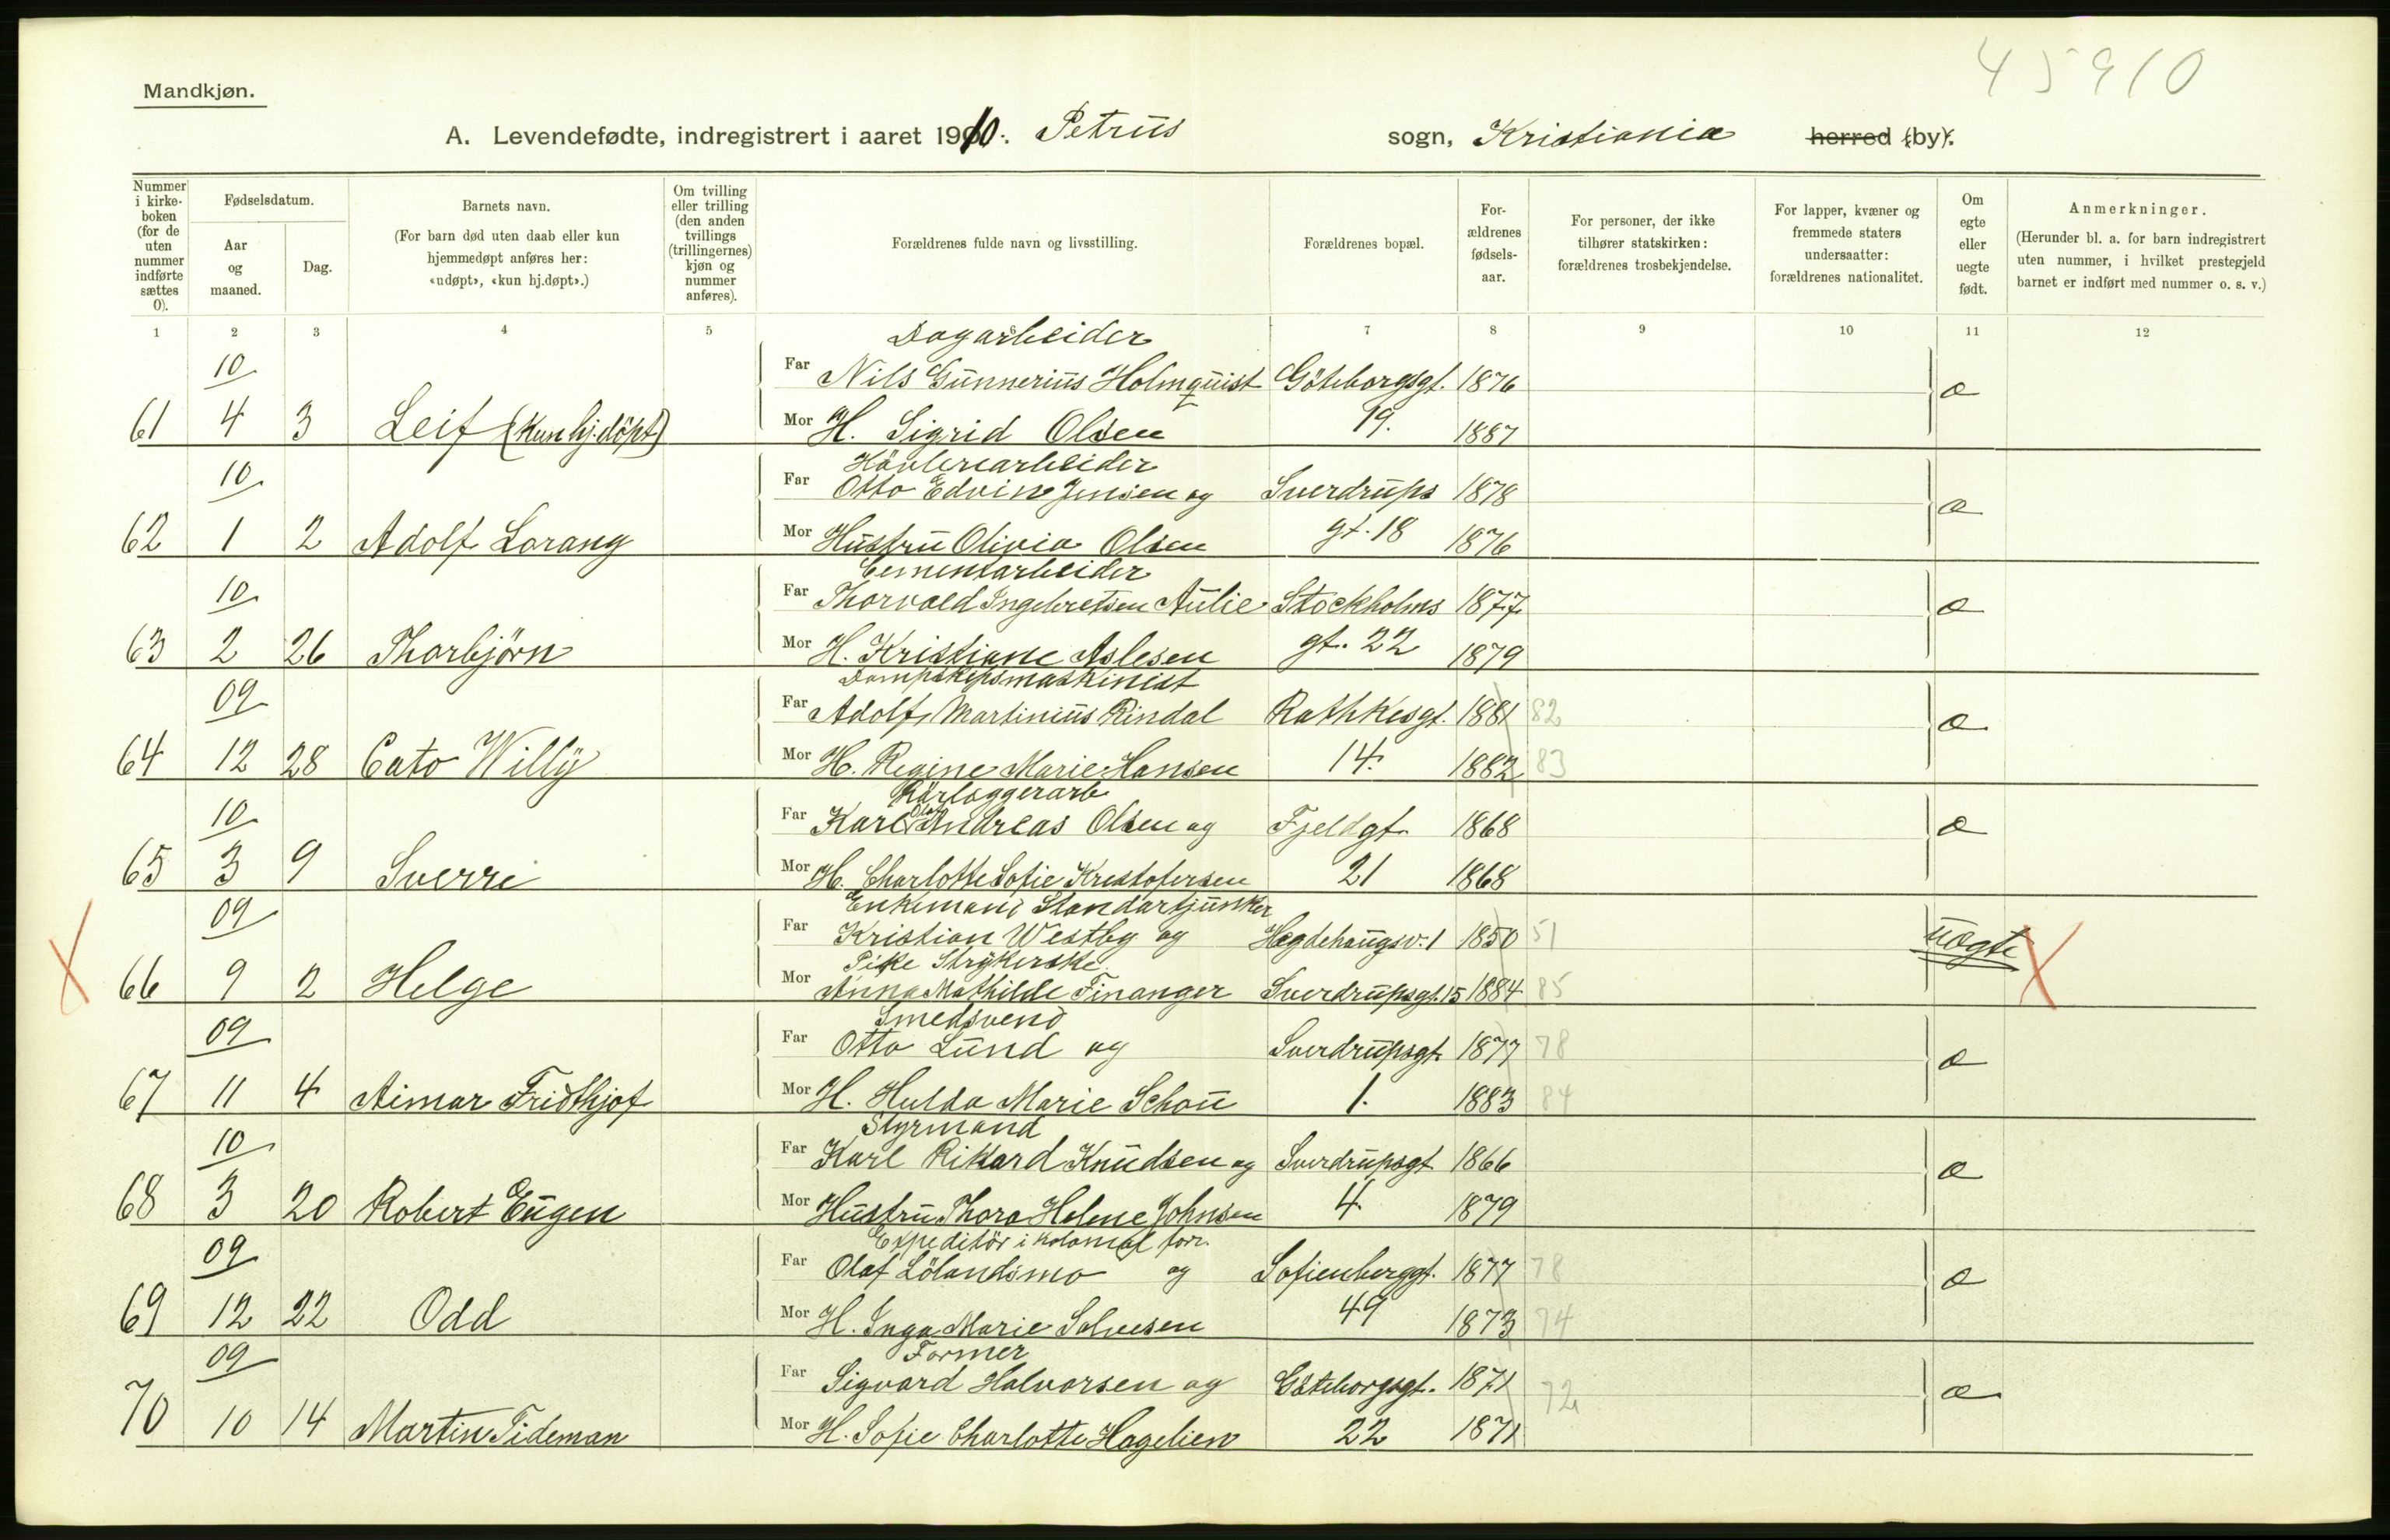 45910
Mandkjøn.
A. Levendefødte, indregistrert i aaret 1910. Petrus sogn, Kristiania herred (by).
Nummer i kirke-boken (for de uten nummer indførte sættes 0).
Fødselsdatum.
Aar og maaned.
Dag.
Barnets navn.
(For barn død uten daab eller kun hjemmedøpt anføres her: «udøpt», «kun hj.døpt».)
Om tvilling eller trilling (den anden tvillings (trillingernes) kjøn og nummer anføres).
Forældrenes fulde navn og livsstilling.
Forældrenes bopæl.
For-ældrenes fødsels-aar.
For personer, der ikke tilhører statskirken: forældrenes trosbekjendelse.
For lapper, kvæner og fremmede staters undersaatter: forældrenes nationalitet.
Om egte eller uegte født.
Anmerkninger.
(Herunder bl. a. for barn indregistrert uten nummer, i hvilket prestegjeld barnet er indført med nummer o. s. v.)
1 2 3 4 5 6 7 8 9 10 11 12
Dagarbeider
10 Far Nils Gunnerius Holmquist Göteborgsgt. 1876 æ
61 4 3 Leif (kun hj.döpt) Mor H. Sigrid Olsen 19. 1887
Hövleriarbeider
10 Far Otto Edvin Jensen og Sverdrups 1878 æ
62 1 2 Adolf Lorang Mor Hustru Olivia Olsen gt. 18 1876
Cementarbeider
10 Far Thorvald Ingebretsen Aulie Stockholms 1877 æ
63 2 26 Thorbjörn Mor H. Kristiane Aslesen gt. 22 1879
Dampskipsmaskinist
09 Far Adolf Martinius Rindal Rathkesgt. 1881 82 æ
64 12 28 Cato Willy Mor H. Regine Marie Hansen 14. 1882 83
Rörlæggerarb
10 Far Karl Olaf Andreas Olsen og Fjeldgt. 1868 æ
65 3 9 Sverre Mor H. Charlotte Sofie Kristofersen 21 1868
Enkemand Standartjunker
09 Far Kristian Westby og Hegdehaugsv. 1 1850 51 uægte
Pike Strykerske
66 9 2 Helge Mor Anna Mathilde Finanger Sverdrupsgt. 15 1884 85
Smedsvend
09 Far Otto Lund og Sverdrupsgt. 1877 78 æ
67 11 4 Aimar Fridthjof Mor H. Hulda Marie Schou 1. 1883 84
Styrmand
10 Far Karl Rikard Knudsen og Sverdrupsgt 1866 æ
68 3 20 Robert Eugen Mor Hustru Thora Helene Johnsen 4 1879
Expeditör i kolonial forr.
09 Far Olaf Lölandsmo og Sofienberggt. 1877 78 æ
69 12 22 Odd Mor H. Inga Marie Solvesen 49 1873 74
Former
09 Far Sigvard Halvorsen og Göteborgsgt. 1871 72 æ
70 10 14 Martin Tideman Mor H. Sofie Charlotte Hagelien 22 1871